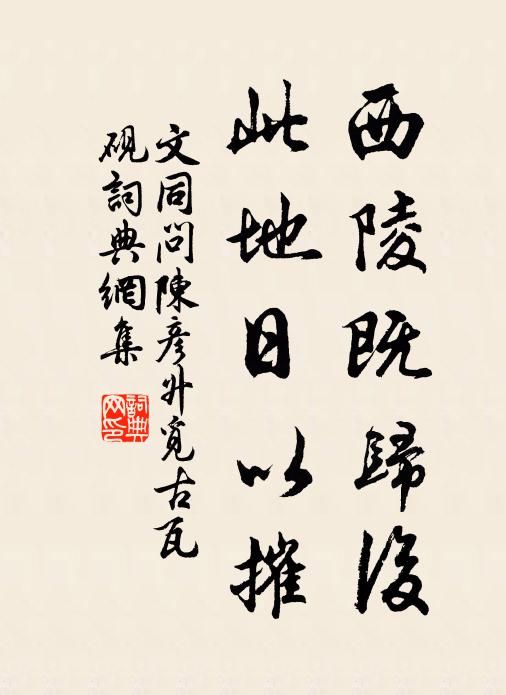 西陵既歸後
此地日以摧
文同問陳彥升覓古瓦
硯詞典網集
詞典網印